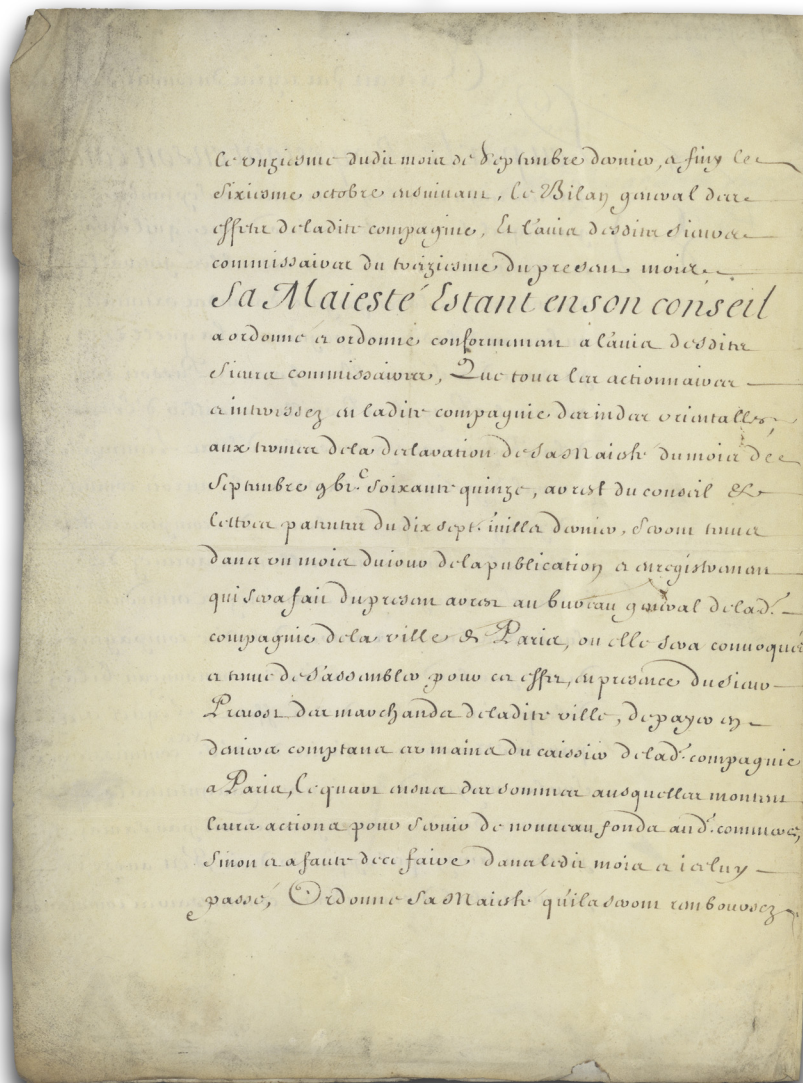 le unziesme dudit mois de Septembre dernier, a finy le
sixiesme octobre ensuivant, le Bilan general des
effetz de ladite compagnie, Et l'auis desdits sieurs
commissaires du treiziesme du present mois
Sa Maiesté Estant en son conseil
a ordonné et ordonne conformement à l'auis desdits
sieurs commissaires, Que tous les actionnaires
et interessez en ladite compagnie des indes orientalles,
aux termes de la declaration de Sa Maiesté du mois de
Septembre gbic soixante quinze, arrest du conseil &
lettres patentes du dix sept. iuillet dernier, seront tenus
dans un mois du iour de la publication et enregistrement
qui sera fait du present arrest au bureau general de lad.
compagnie de la ville de Paris, ou elle sera conuoquée
et tenue de s'assembler pour cet effet, en presence du sieur
Preuost des marchands de ladite ville, de payer en
deniers comptans es mains du caissier de lad. compagnie
a Paris, le quart en sus des sommes ausquelles montent
leurs actions pour seruir de nouueau fonds aud. commerce,
sinon et a faute de ce faire dans ledit mois et iceluy
passé, Ordonne Sa Maiesté qu'ils seront rembourséz